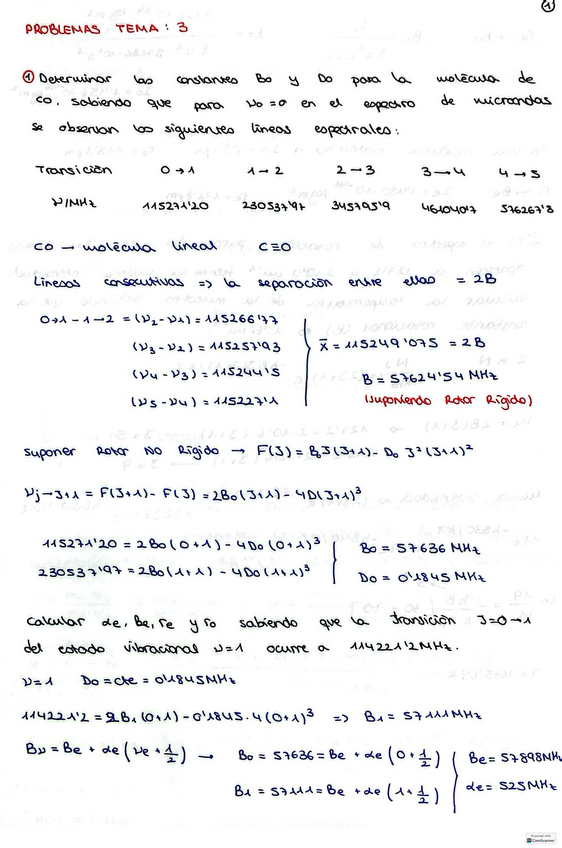 1
PROBLEMAS TEMA: 3
① Determinar las constantes B0 y D0 para la molécula de
CO. Sabiendo que para ν0=0 en el espectro de microondas
se observan las siguientes líneas espectrales:
Transición 0→1 1→2 2→3 3→4 4→5
ν/MHz 115271'20 230537'97 345795'9 461040'7 576267'8
CO → molécula lineal C≡O
Líneas consecutivas => la separación entre ellas = 2B
0→1 - 1→2 = (ν2-ν1) = 115266'77
(ν3-ν2) = 115257'93
x̄ = 115249'075 = 2B
(ν4-ν3) = 115244'5
B = 57624'54 MHz
(ν5-ν4) = 115227'1
(suponiendo Rotor Rígido)
Suponer Rotor NO Rígido → F(J) = B0J(J+1) - D0 J²(J+1)²
νJ→J+1 = F(J+1) - F(J) = 2B0(J+1) - 4D(J+1)³
115271'20 = 2B0(0+1) - 4D0(0+1)³ B0 = 57636 MHz
230537'97 = 2B0(1+1) - 4D0(1+1)³ D0 = 0'1845 MHz
Calcular αe, Be, re y r0 sabiendo que la transición J=0→1
del estado vibracional ν=1 ocurre a 114221'2 MHz.
ν=1 D0 = cte = 0'1845 MHz
114221'2 = 2B1(0+1) - 0'1845·4(0+1)³ => B1 = 57111 MHz
Bν = Be + αe(νe + 1/2) → B0 = 57636 = Be + αe(0 + 1/2) Be = 57898 MHz
B1 = 57111 = Be + αe(1 + 1/2) αe = 525 MHz
Scanned with
CamScanner